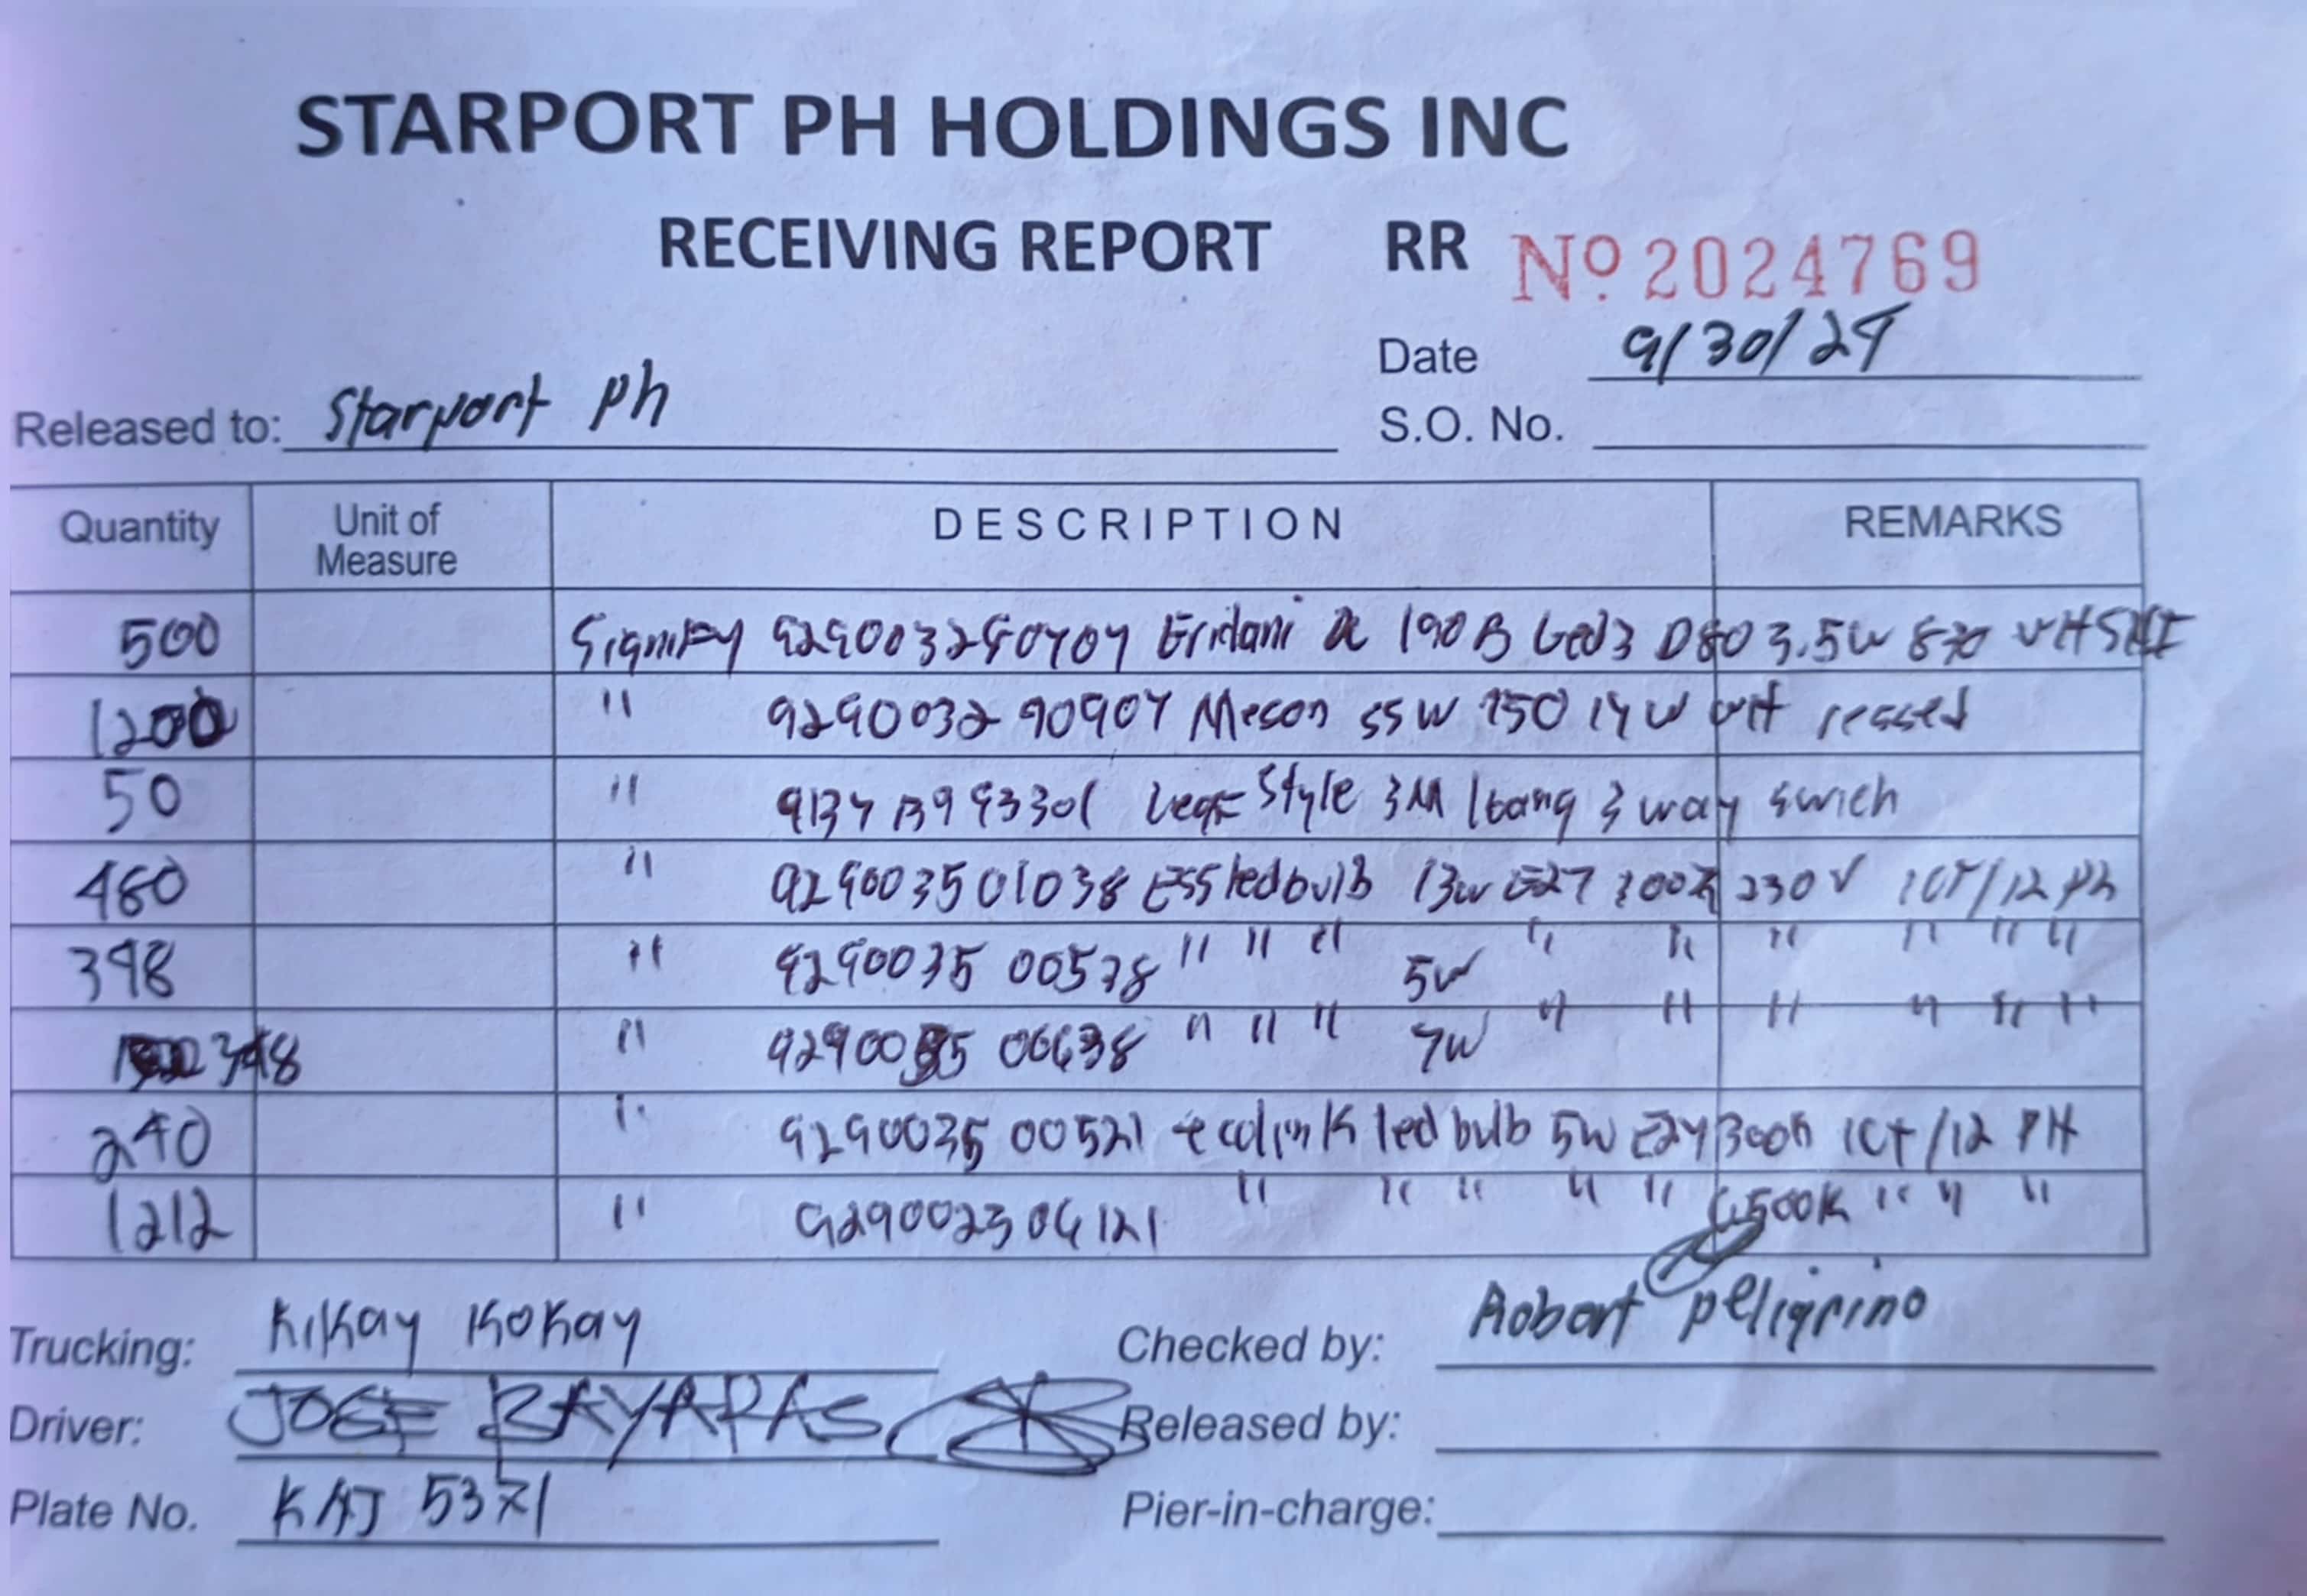 STARPORT PH HOLDINGS INC
RECEIVING REPORT RR Nº 2024769
Date 9/30/24
Released to: Starport Ph
S.O. No.
Quantity Unit of Measure DESCRIPTION REMARKS
500 Signify 929003250707 Eridani 190 B Led3 D80 3.5W 830 WH SNI
1200 " 929003290907 Meson SSW 150 14W WH recced
50 " 9137139 93301 Leaf Style 3M 1Gang 3 way swich
480 " 929003501038 ESS led bulb 13w E27 300K 230V 1CT/12 Ph
398 " 9290035 00578 " " " 5W " " " " " "
348 " 9290035 00638 " " " 7W " " " " " "
240 " 9290035 00521 ecolink led bulb 5W E27 300K 1CT/12 PH
1212 " 929002304121 " " " " " 6500K " " "
Trucking: KiKay KoKay
Checked by: Robart Peligrino
Driver: JOSE BAYARAS
Released by:
Plate No. KAJ 5371
Pier-in-charge: